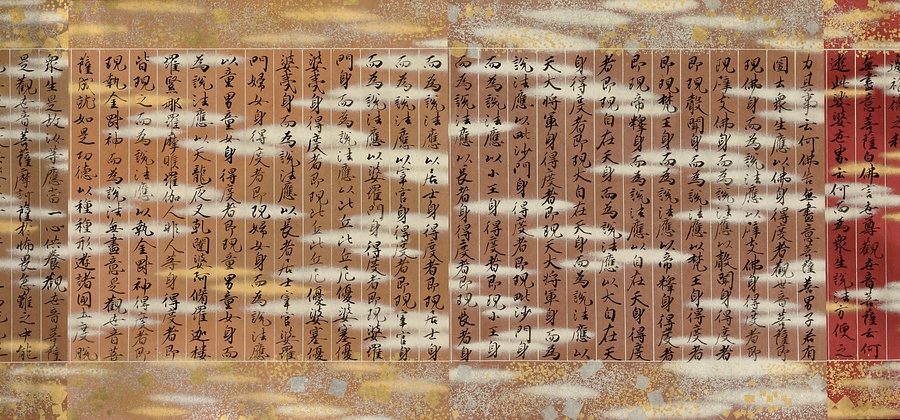 無盡意菩薩白佛言世尊觀世音菩薩云何
遊此娑婆世界云何而為眾生說法方便之
力其事云何佛告無盡意菩薩善男子若有
國土眾生應以佛身得度者觀世音菩薩即
現佛身而為說法應以辟支佛身得度者即
現辟支佛身而為說法應以聲聞身得度者
即現聲聞身而為說法應以梵王身得度者
即現梵王身而為說法應以帝釋身得度者
即現帝釋身而為說法應以自在天身得度
者即現自在天身而為說法應以大自在天
身得度者即現大自在天身而為說法應以
天大將軍身得度者即現天大將軍身而為
說法應以毗沙門身得度者即現毗沙門身
而為說法應以小王身得度者即現小王身
而為說法應以長者身得度者即現長者身
而為說法應以居士身得度者即現居士身
而為說法應以宰官身得度者即現宰官身
而為說法應以婆羅門身得度者即現婆羅
門身而為說法應以比丘比丘尼優婆塞優
婆夷身得度者即現比丘比丘尼優婆塞優
婆夷身而為說法應以長者居士宰官婆羅
門婦女身得度者即現婦女身而為說法應
以童男童女身得度者即現童男童女身而
為說法應以天龍夜叉乾闥婆阿脩羅迦樓
羅緊那羅摩睺羅伽人非人等身得度者即
皆現之而為說法應以執金剛神得度者即
現執金剛神而為說法無盡意是觀世音菩
薩成就如是功德以種種形遊諸國土度脫
眾生是故汝等應當一心供養觀世音菩薩
是觀世音菩薩摩訶薩於怖畏急難之中能